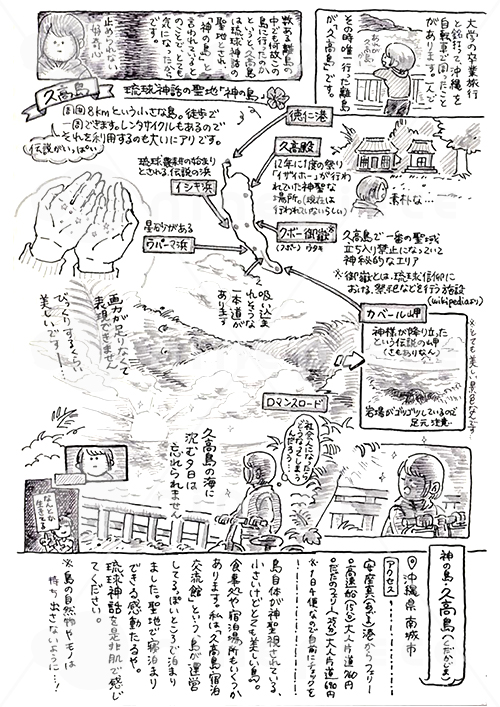 大学の卒業旅行
と銘打って、沖縄を
自転車で周ったこと
があります。一人で
その時唯一行った離島
が「久高島」です。
数ある離島の
中でも何故この
島に行ったのか
というと、久高島
は琉球神話の
聖地とされ、
「神の島」と
言われていると
のことで、とても
気になったから
です。
止められない
好奇心
久高島
琉球神話の聖地「神の島」
周囲8kmという小さな島。徒歩で
周できます。レンタサイクルもあるので
それを利用するのも大いにアリです。
伝説がいっぱい
徳仁港
久高殿
12年に1度の祭り
「イザイホー」が行わ
れていた神聖な
場所。(現在は
行われていないらしい)
素朴な…
琉球農耕の始まり
とされる伝説の浜
イシキ浜
星砂がある
ウパーマ浜
クボー御嶽※
(フボー)ウタキ
久高島で一番の聖域
立ち入り禁止になっていて
神秘的なエリア
※御嶽とは、琉球信仰に
おける、祭祀などを行う施設
(wikipediaより)
吸い込ま
れそうな
一本道が
あります
カベール岬
神様が降り立った
という伝説の岬
(さもありなん)
岩場がゴツゴツしているので
足元注意…
※とても美しい景色なとこです
画力が足りなくて
表現できません
びっくりするくらい
美しいです…!
ロマンスロード
社会人になったら
どうなってしまう
んだろう…
久高島の海に
沈む夕日は
忘れられません
なんとか
生きてるよ
神の島 久高島(くだかじま)
沖縄県 南城市
アクセス
安座真(あざま)港からフェリー
○高速船(15分)大人片道760円
○ただのフェリー(25分)大人片道690円
※1日6便なので自前にチェックを
島自体が神聖視されている、
小さいけどとても美しい島。
食事処や宿泊場所もいくつか
あります。私は、「久高島宿泊
交流館」という、島が運営
してるっぽいところで泊まり
ました。聖地で寝泊まり
できる感動たるや。
琉球神話を是非肌で感じ
てください。
※島の自然物やモノは
持ち出さないように…!